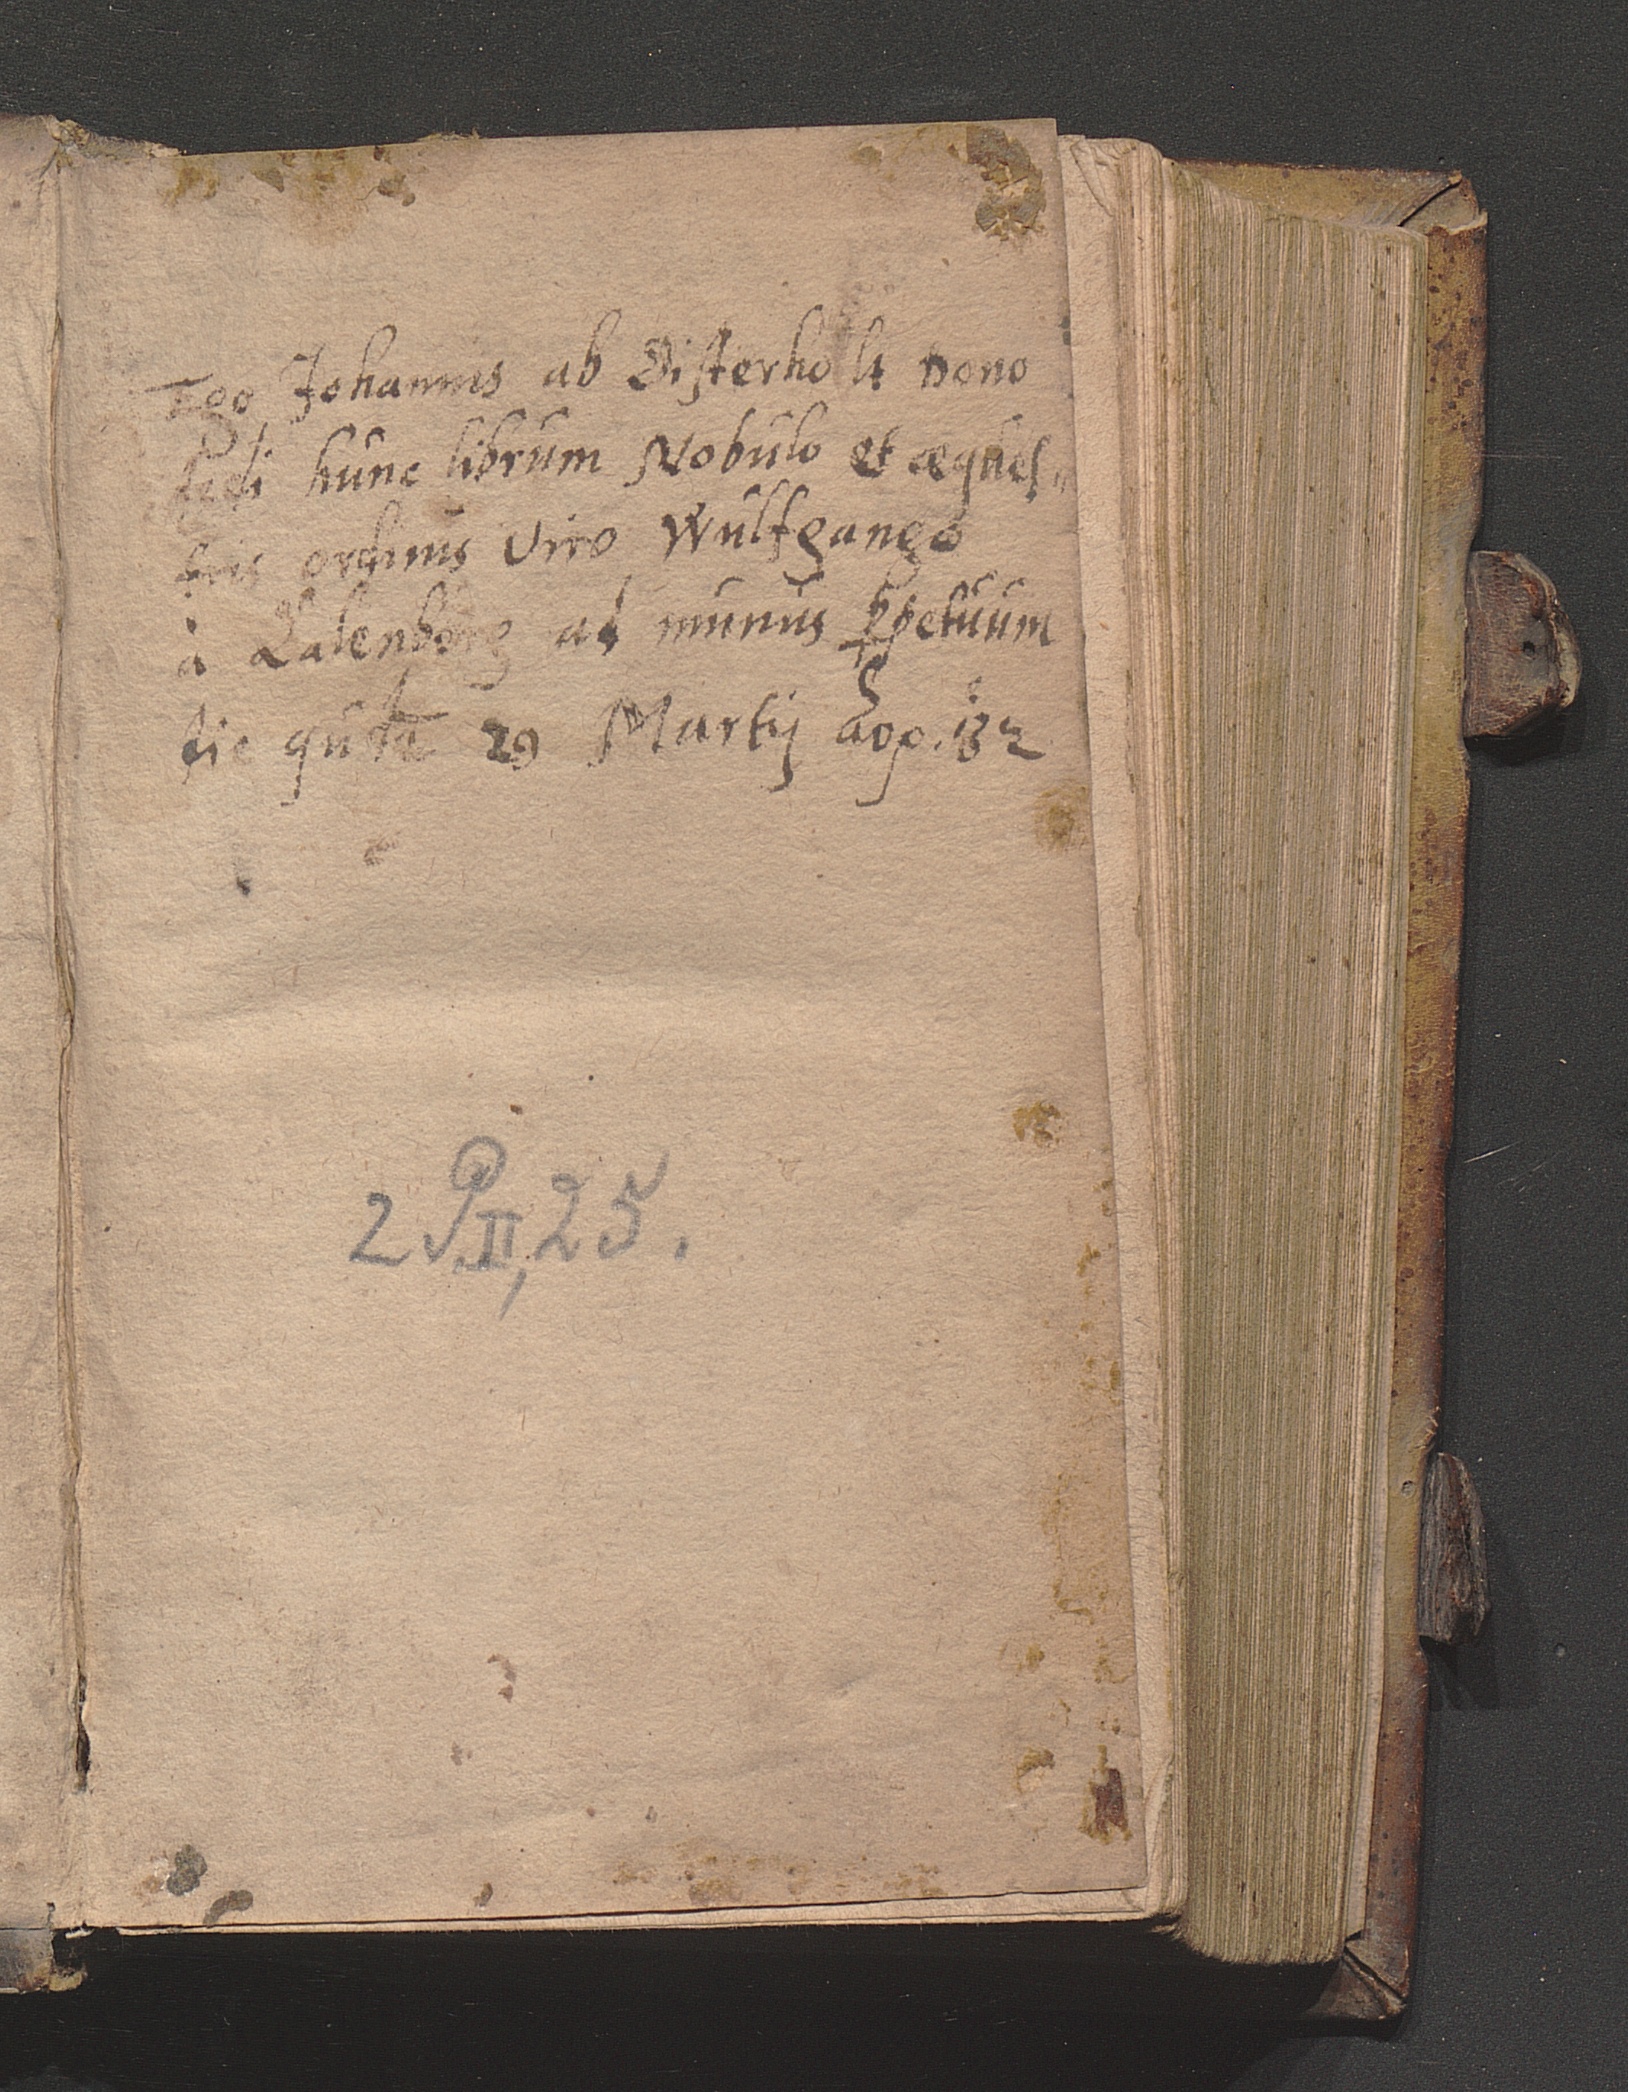 Ego Johannes ab Disterholt dono
dedi hunc librum Nobülo et æques„
tris ordinis Viro Wulfgango
à Lalenborg ad munus ꝑpetuum
die 29 Martij
2 P.II, 25.